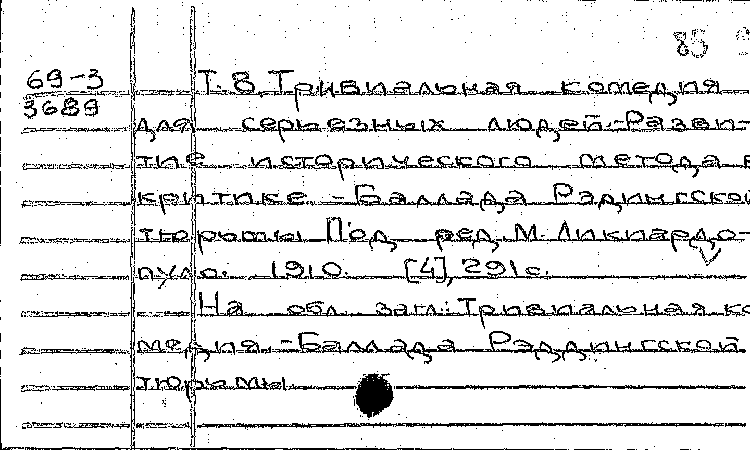 85
69-3
3689
Т. 8. Тривиальная комедия
для серьезных людей.-Разви-
тие исторического метода в
критике.-Баллада Рэдингской
тюрьмы Под ред. М. Ликиардо-
пуло. 1910. [4], 291 с.
На обл. загл.: Тривиальная ко
медия.-Баллада Рэддингской
тюрьмы.